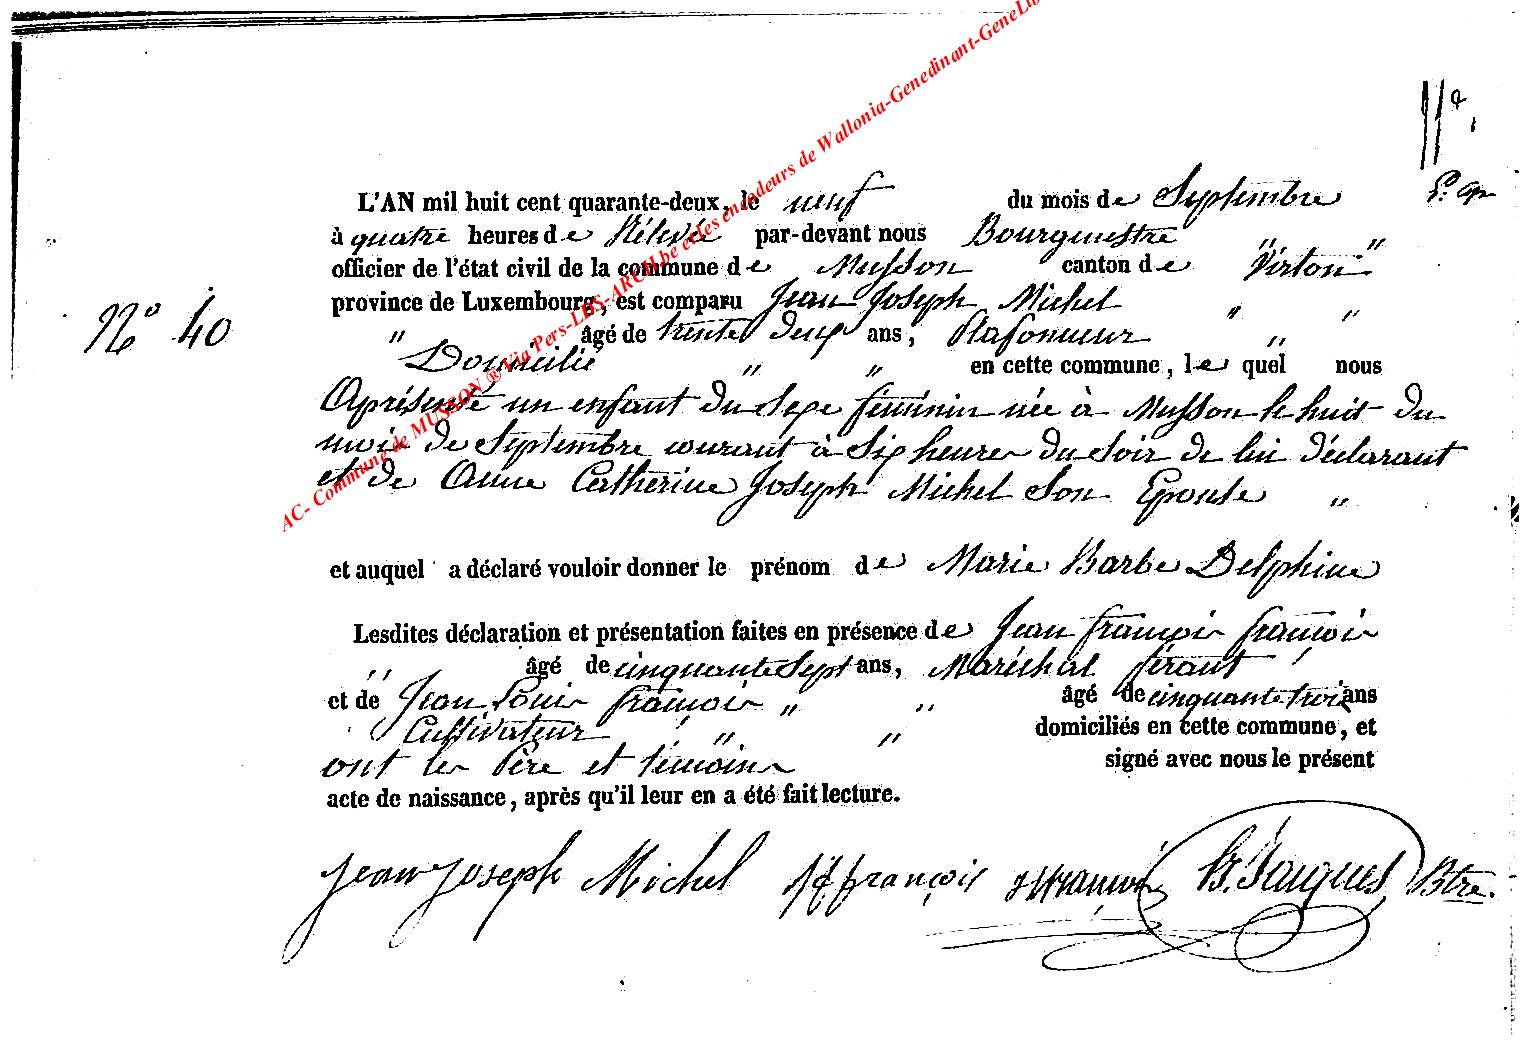 AC- Commune de MUSSON ® Via Pers-LDS-ARCH.be et les encodeurs de Wallonia-Genedinant-GeneLib
L'AN mil huit cent quarante-deux, le neuf du mois de Septembre
à quatre heures de Rélevée par-devant nous Bourgmestre "
officier de l'état civil de la commune de Musson canton de Virton "
N° 40
province de Luxembourg, est comparu Jean Joseph Michel " "
" âgé de trente deux ans, Plafonneur "
Domicilié " " en cette commune, le quel nous
A présenté un enfant du Sexe féminin née à Musson le huit du
mois de Septembre courant à Six heures du Soir de lui déclarant
et de Anne Catherine Joseph Michel Son Epouse "
et auquel a déclaré vouloir donner le prénom de Marie Barbe Delphine
Lesdites déclaration et présentation faites en présence de Jean françois françois
" âgé de cinquante Sept ans, Maréchal férant
et de Jean Louis françois " " âgé de cinquante trois ans
Cultivateur " " domiciliés en cette commune, et
ont les Père et témoins signé avec nous le présent
acte de naissance, après qu'il leur en a été fait lecture.
Jean Joseph Michel françois Jacques Btre.